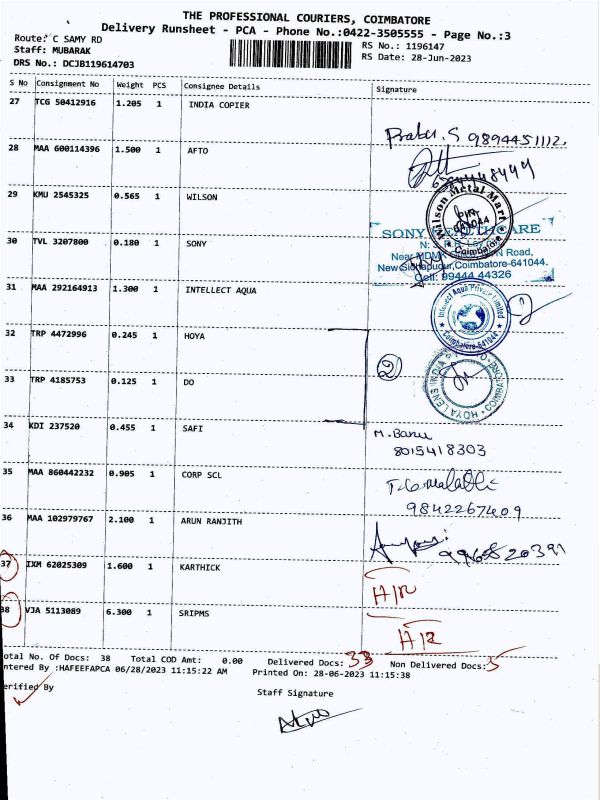 THE PROFESSIONAL COURIERS, COIMBATORE
Delivery Runsheet - PCA - Phone No.:0422-3505555 - Page No.:3
Route: C SAMY RD
Staff: MUBARAK
DRS No.: DCJB119614703
RS No.: 1196147
RS Date: 28-Jun-2023
S No Consignment No Weight PCS Consignee Details Signature
27 TCG 50412916 1.205 1 INDIA COPIER
9894451112.
28 MAA 600114396 1.500 1 AFTO
29 KMU 2545325 0.565 1 WILSON
Wilson Metal Mart
Coimbatore
30 TVL 3207800 0.180 1 SONY
SONY
Road,
Coimbatore-641044.
Cell: 99444 44326
31 MAA 292164913 1.300 1 INTELLECT AQUA
Intellect Aqua Private Limited
Coimbatore-641044
32 TRP 4472996 0.245 1 HOYA
2
33 TRP 4185753 0.125 1 DO
HOYA LENS INDIA
34 KDI 237520 0.455 1 SAFI
M. Banu
8015418303
35 MAA 860442232 0.905 1 CORP SCL
9842267409
36 MAA 102979767 2.100 1 ARUN RANJITH
37 IXM 62025309 1.600 1 KARTHICK
38 VJA 5113089 6.300 1 SRIPMS
otal No. Of Docs: 38 Total COD Amt: 0.00 Delivered Docs: 33 Non Delivered Docs: 5
ntered By :HAFEEFAPCA 06/28/2023 11:15:22 AM Printed On: 28-06-2023 11:15:38
erified By
Staff Signature